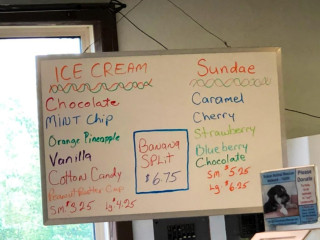 ICE CREAM
Chocolate
MINT Chip
Orange Pineapple
Vanilla
Cotton Candy
Peanut Butter Cup
SM $3.25 Lg $4.25
Banana
SPLIT
$6.75
Sundae
Caramel
Cherry
Strawberry
Blueberry
Chocolate
SM $5.25
Lg $6.25
Please
Donate